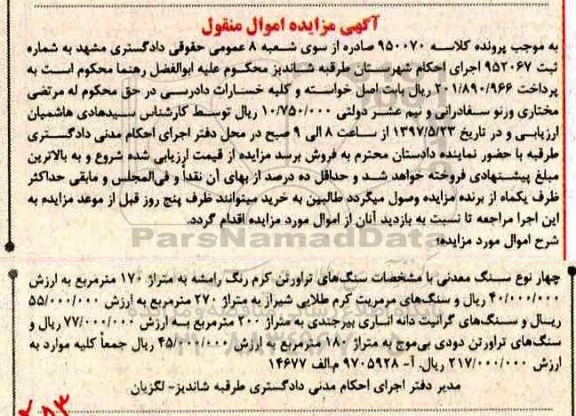 آگهی مزایده اموال منقول
به موجب پرونده کلاسه ۹۵۰۰۷۰ صادره از سوی شعبه ۸ عمومی حقوقی دادگستری مشهد به شماره
ثبت ۹۵۲۰۶۷ اجرای احکام شهرستان طرقبه شاندیز محکوم علیه ابوالفضل رهنما محکوم است به
پرداخت ۲۰۱/۸۹۰/۹۶۶ ریال بابت اصل خواسته و کلیه خسارات دادرسی در حق محکوم له مرتضی
مختاری ورنو سفادرانی و نیم عشر دولتی ۱۰/۷۵۰/۰۰۰ ریال توسط کارشناس سیدهادی هاشمیان
ارزیابی و در تاریخ ۱۳۹۷/۵/۲۳ از ساعت ۸ الی ۹ صبح در محل دفتر اجرای احکام مدنی دادگستری
طرقبه با حضور نماینده دادستان محترم به فروش برسد مزایده از قیمت ارزیابی شده شروع و به بالاترین
مبلغ پیشنهادی فروخته خواهد شد و حداقل ده درصد از بهای آن نقداً و فی‌المجلس و مابقی حداکثر
ظرف یکماه از برنده مزایده وصول میگردد طالبین به خرید میتوانند ظرف پنج روز قبل از موعد مزایده به
این اجرا مراجعه تا نسبت به بازدید آنان از اموال مورد مزایده اقدام گردد.
ParsNamadData
شرح اموال مورد مزایده:
چهار نوع سنگ معدنی با مشخصات سنگ‌های تراورتن کرم رنگ رامشه به متراژ ۱۷۰ مترمربع به ارزش
۴۰/۰۰۰/۰۰۰ ریال و سنگ‌های مرمریت کرم طلایی شیراز به متراژ ۲۷۰ مترمربع به ارزش ۵۵/۰۰۰/۰۰۰
ریسال و سنگ‌های گرانیت دانه اناری بیرجندی به متراژ ۲۰۰ مترمربع به ارزش ۷۷/۰۰۰/۰۰۰ ریال و
سنگ‌های تراورتن دودی بی‌موج به متراژ ۱۸۰ مترمربع به ارزش ۴۵/۰۰۰/۰۰۰ ریال جمعاً کلیه موارد به
ارزش ۲۱۷/۰۰۰/۰۰۰ ریال. آ- ۹۷۰۵۹۲۸ م‌الف ۱۴۶۷۷
مدیر دفتر اجرای احکام مدنی دادگستری طرقبه شاندیز- لگزیان